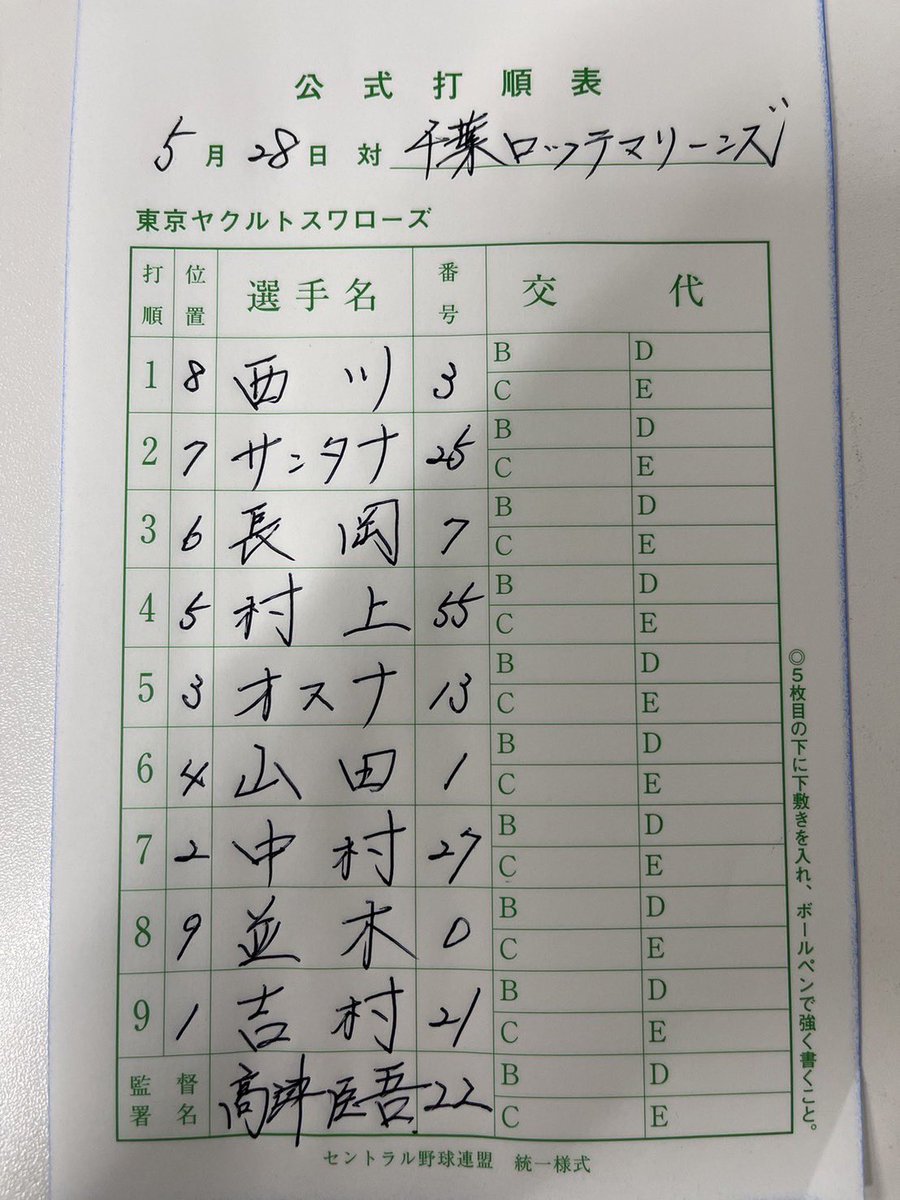 公式打順表
5月28日 対 千葉ロッテマリーンズ
東京ヤクルトスワローズ
打順 位置 選手名 番号 交代
1 8 西川 3 B D
C E
2 7 サンタナ 25 B D
C E
3 6 長岡 7 B D
C E
4 5 村上 55 B D
C E
5 3 オスナ 13 B D
C E
6 4 山田 1 B D
C E
7 2 中村 27 B D
C E
8 9 並木 0 B D
C E
9 1 吉村 21 B D
C E
監督署名 高津臣吾 22 B D
C E
◎5枚目の下に下敷きを入れ、ボールペンで強く書くこと。
セントラル野球連盟 統一様式